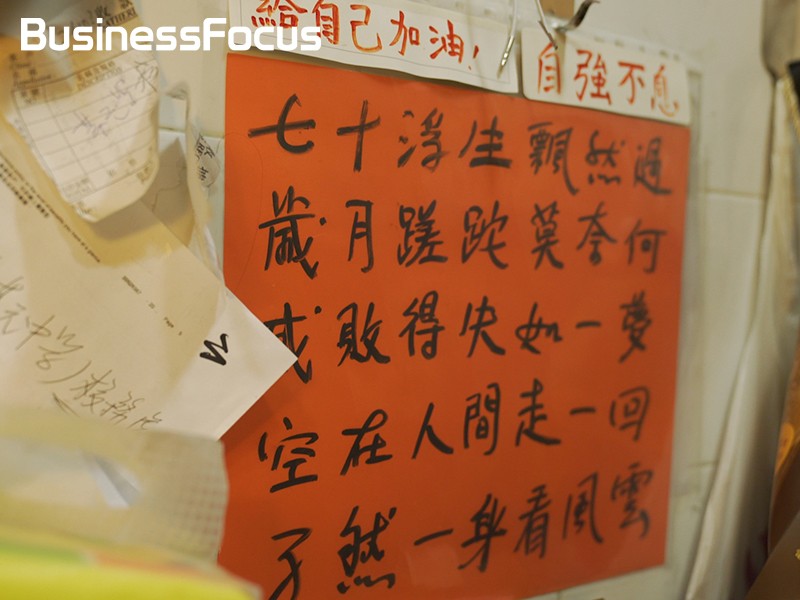 BusinessFocus
給自己加油!
自強不息
七十浮生飄然過
歲月蹉跎莫奈何
成敗得失如一夢
空在人間走一回
孑然一身看風雲